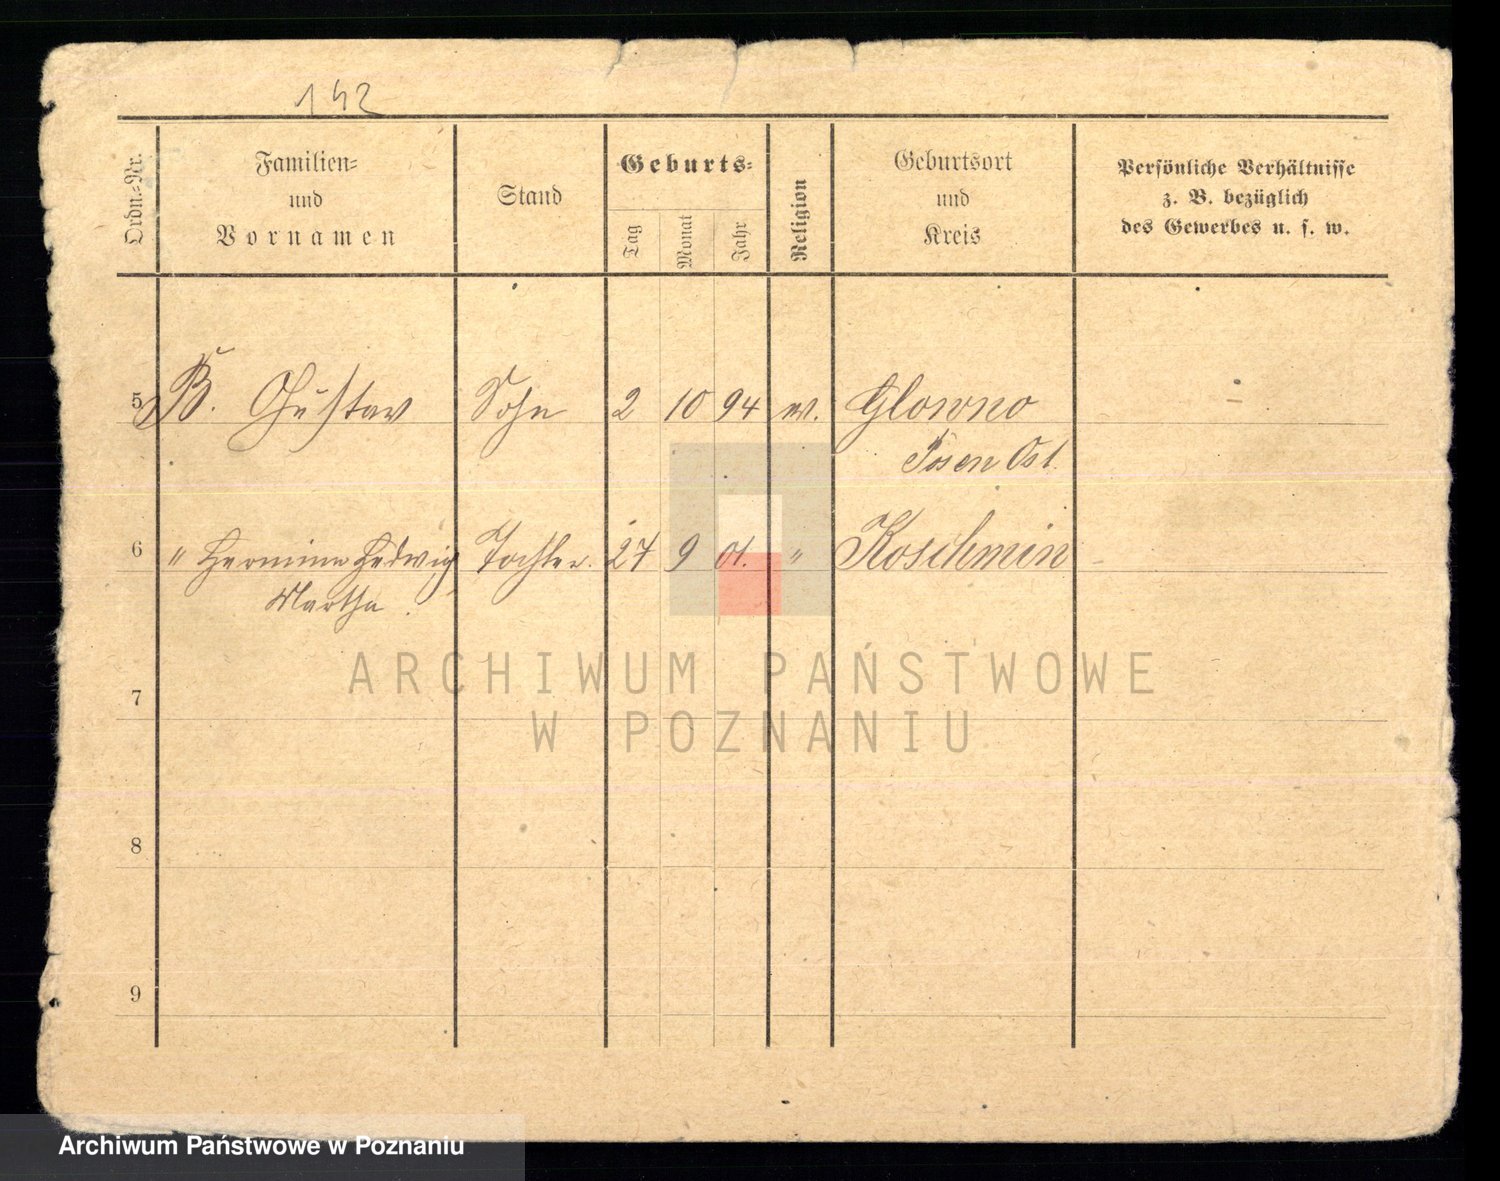 142
Ordn.-Nr.
Familien-
und
Vornamen
Stand
Geburts-
Tag
Monat
Jahr
Religion
Geburtsort
und
Kreis
Persönliche Verhältnisse
z. B. bezüglich
des Gewerbes u. s. w.
5 B. Gustav Sohn 2 10 94 ev. Glowno
Posen Ost.
6 " Hermine Hedwig Tochter. 27 9 01. " Koschmin
Martha.
7
8
9
ARCHIWUM PAŃSTWOWE
W POZNANIU
Archiwum Państwowe w Poznaniu